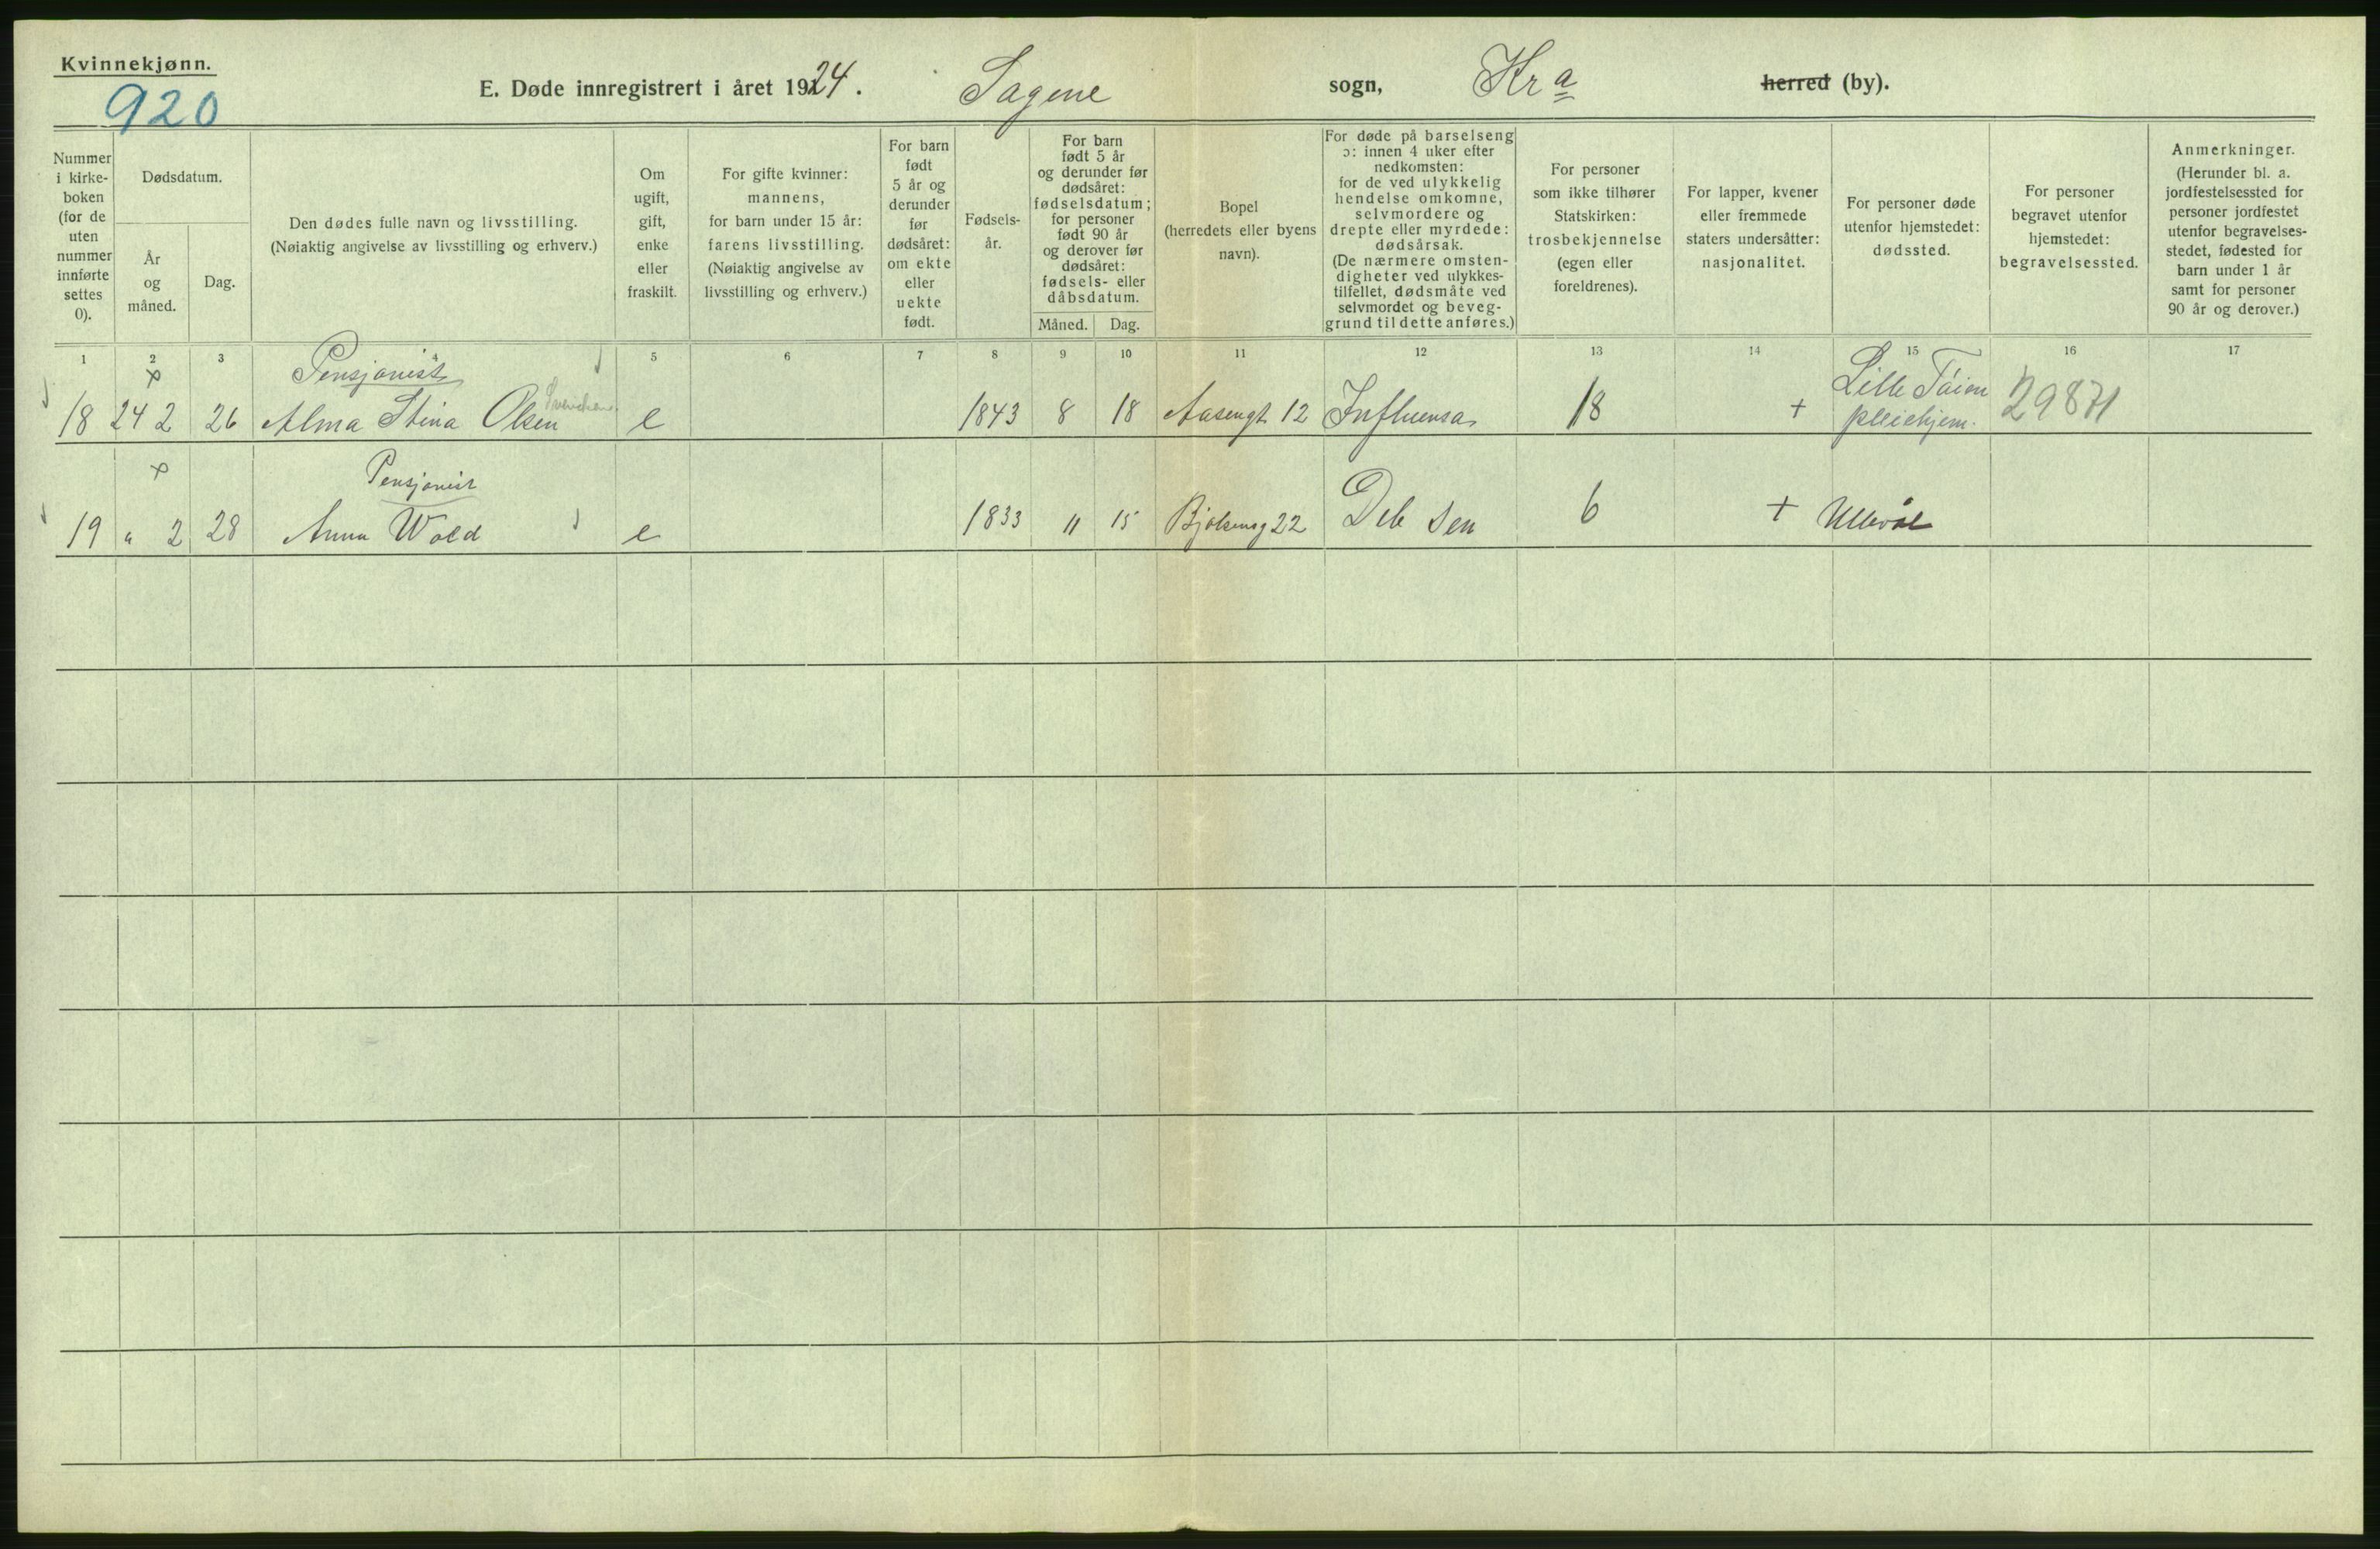 Kvinnekjønn.
920
E. Døde innregistrert i året 1924. Sagene sogn, Kra herred (by).
Nummer i kirke-boken (for de uten nummer innførte settes 0).
Dødsdatum.
År og måned.
Dag.
Den dødes fulle navn og livsstilling.
(Nøiaktig angivelse av livsstilling og erhverv.)
Om ugift, gift, enke eller fraskilt.
For gifte kvinner: mannens, for barn under 15 år: farens livsstilling. (Nøiaktig angivelse av livsstilling og erhverv.)
For barn født 5 år og derunder før dødsåret: om ekte eller uekte født.
Fødsels-år.
For barn født 5 år og derunder før dødsåret: fødselsdatum; for personer født 90 år og derover før dødsåret: fødsels- eller dåbsdatum.
Måned. Dag.
Bopel (herredets eller byens navn).
For døde på barselseng ɔ: innen 4 uker efter nedkomsten: for de ved ulykkelig hendelse omkomne, selvmordere og drepte eller myrdede: dødsårsak. (De nærmere omsten-digheter ved ulykkes-tilfellet, dødsmåte ved selvmordet og beveg-grund til dette anføres.)
For personer som ikke tilhører Statskirken: trosbekjennelse (egen eller foreldrenes).
For lapper, kvener eller fremmede staters undersåtter: nasjonalitet.
For personer døde utenfor hjemstedet: dødssted.
For personer begravet utenfor hjemstedet: begravelsessted.
Anmerkninger. (Herunder bl. a. jordfestelsessted for personer jordfestet utenfor begravelses-stedet, fødested for barn under 1 år samt for personer 90 år og derover.)
1 2 3 4 5 6 7 8 9 10 11 12 13 14 15 16 17
Pensjonist
18 24 2 26 Alma Stina Olsen e 1843 8 18 Aasengt 12 Influensa 18 + Lille Tøien pleiehjem. 29871
Pensjonist
19 " 2 28 Anna Wold e 1833 11 15 Bjølseng 22 Deb sen 6 + Ullevål